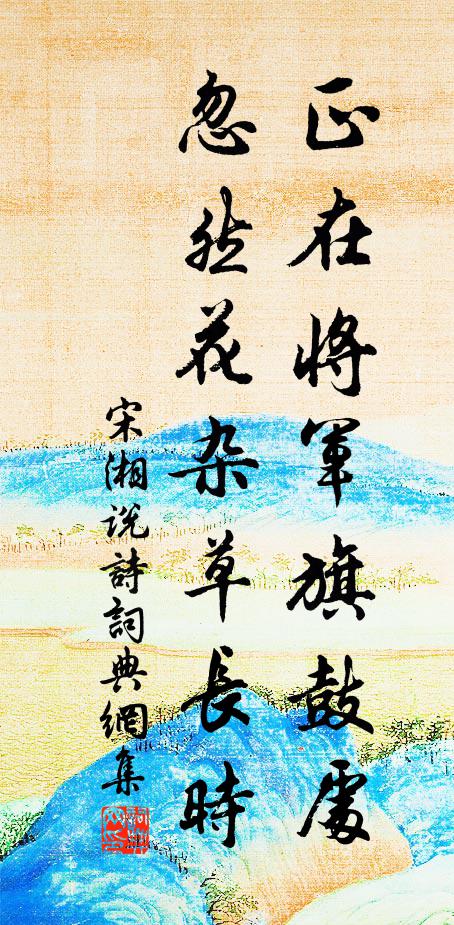 正在將軍旗鼓處
忽然花杂草長時
宋湘说詩詞典網集